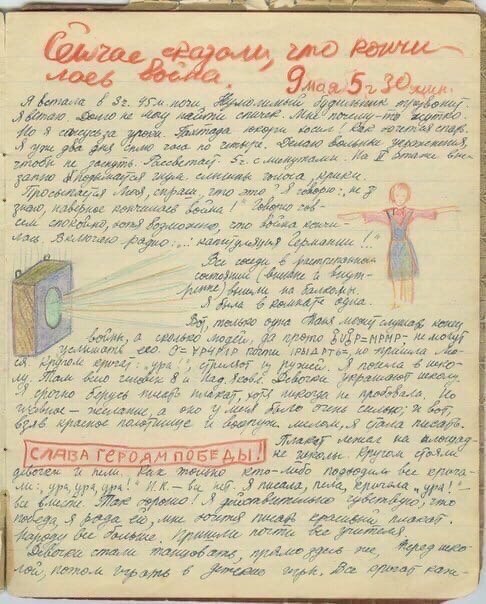 Сейчас сказали, что кончи-
лась война. 9 мая 5 ч 30 мин.
Я встала в 3 ч. 45 м. ночи. Неумолимый будильник трезвонит.
Я встаю. Долго не могу найти спичек. Мне почему-то жутко.
Но я сажусь за уроки. Как хочется спать.
Я уже два дня сплю часа по четыре. Делаю вольные упражнения,
чтобы не заснуть. Рассветает. 5 ч. с минутами. На II этаже вне-
запно поднимается шум. слышны голоса, крики.
Просыпается Люся, спраш.: „что это?" Я говорю: „не
знаю, наверное кончилась война!" Говорю сов-
сем спокойно, хотя возможно, что война кончи-
лась. Включаю радио: „..: капитуляция Германии!.."
Все соседи в растрепанном
состоянии (внешне и внут-
ренне) вышли на балкон.
Я была в комнате одна.
Вот, только одна Наня может слушать конец
войны, а сколько людей, да просто не могут
услышать его. почти но пришла Лю-
ся. Кругом кричат: „ура!", стреляют из ружей. Я пошла в шко-
лу. Там было человек 8 и Над. Яковл. Девочки украшают школу.
Я срочно берусь писать плакат, хотя никогда не пробовала. Но
главное – желание, а оно у меня было очень сильно; и вот,
взяв красное полотнище и разведя мелом, я стала писать.
СЛАВА ГЕРОЯМ ПОБЕДЫ!
Плакат лежал на площад-
ке школы. Кругом стояли
девочки и пели. Как только кто-либо подходил все крича-
ли: „ура, ура, ура!" И.К. – ви нет. Я писала, пела, кричала „ура!" –
все вместе. Так хорошо! Я действительно чувствую, что
победа, я рада ей, мне хочется писать красивый плакат.
Народу все больше. Пришли почти все учителя.
Девочки стали танцовать, прямо здесь же, перед шко-
лой, потом играть в детские игры. Все кричат каж-